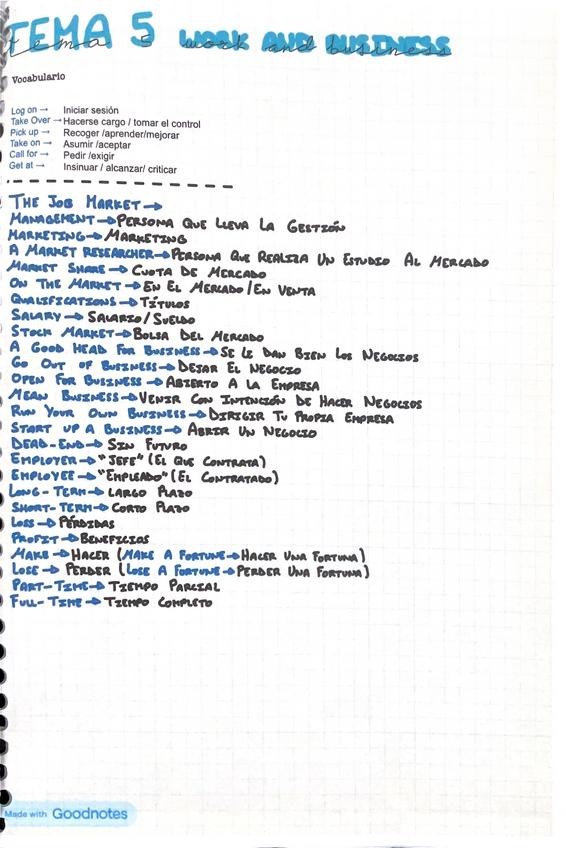 TEMA 5 WORK AND BUSINESS
Tema 5 work and business
Vocabulario
Log on → Iniciar sesión
Take Over → Hacerse cargo / tomar el control
Pick up → Recoger /aprender/mejorar
Take on → Asumir /aceptar
Call for → Pedir /exigir
Get at → Insinuar / alcanzar/ criticar
THE JOB MARKET →
MANAGEMENT → PERSONA QUE LLEVA LA GESTIÓN
MARKETING → MARKETING
A MARKET RESEARCHER → PERSONA QUE REALIZA UN ESTUDIO AL MERCADO
MARKET SHARE → CUOTA DE MERCADO
ON THE MARKET → EN EL MERCADO/EN VENTA
QUALIFICATIONS → TÍTULOS
SALARY → SALARIO/SUELDO
STOCK MARKET → BOLSA DEL MERCADO
A GOOD HEAD FOR BUSINESS → SE LE DAN BIEN LOS NEGOCIOS
GO OUT OF BUSINESS → DEJAR EL NEGOCIO
OPEN FOR BUSINESS → ABIERTO A LA EMPRESA
MEAN BUSINESS → VENIR CON INTENCIÓN DE HACER NEGOCIOS
RUN YOUR OWN BUSINESS → DIRIGIR TU PROPIA EMPRESA
START UP A BUSINESS → ABRIR UN NEGOCIO
DEAD-END → SIN FUTURO
EMPLOYER → "JEFE" (EL QUE CONTRATA)
EMPLOYEE → "EMPLEADO" (EL CONTRATADO)
LONG-TERM → LARGO PLAZO
SHORT-TERM → CORTO PLAZO
LOSS → PÉRDIDAS
PROFIT → BENEFICIOS
MAKE → HACER (MAKE A FORTUNE → HACER UNA FORTUNA)
LOSE → PERDER (LOSE A FORTUNE → PERDER UNA FORTUNA)
PART-TIME → TIEMPO PARCIAL
FULL-TIME → TIEMPO COMPLETO
Made with Goodnotes